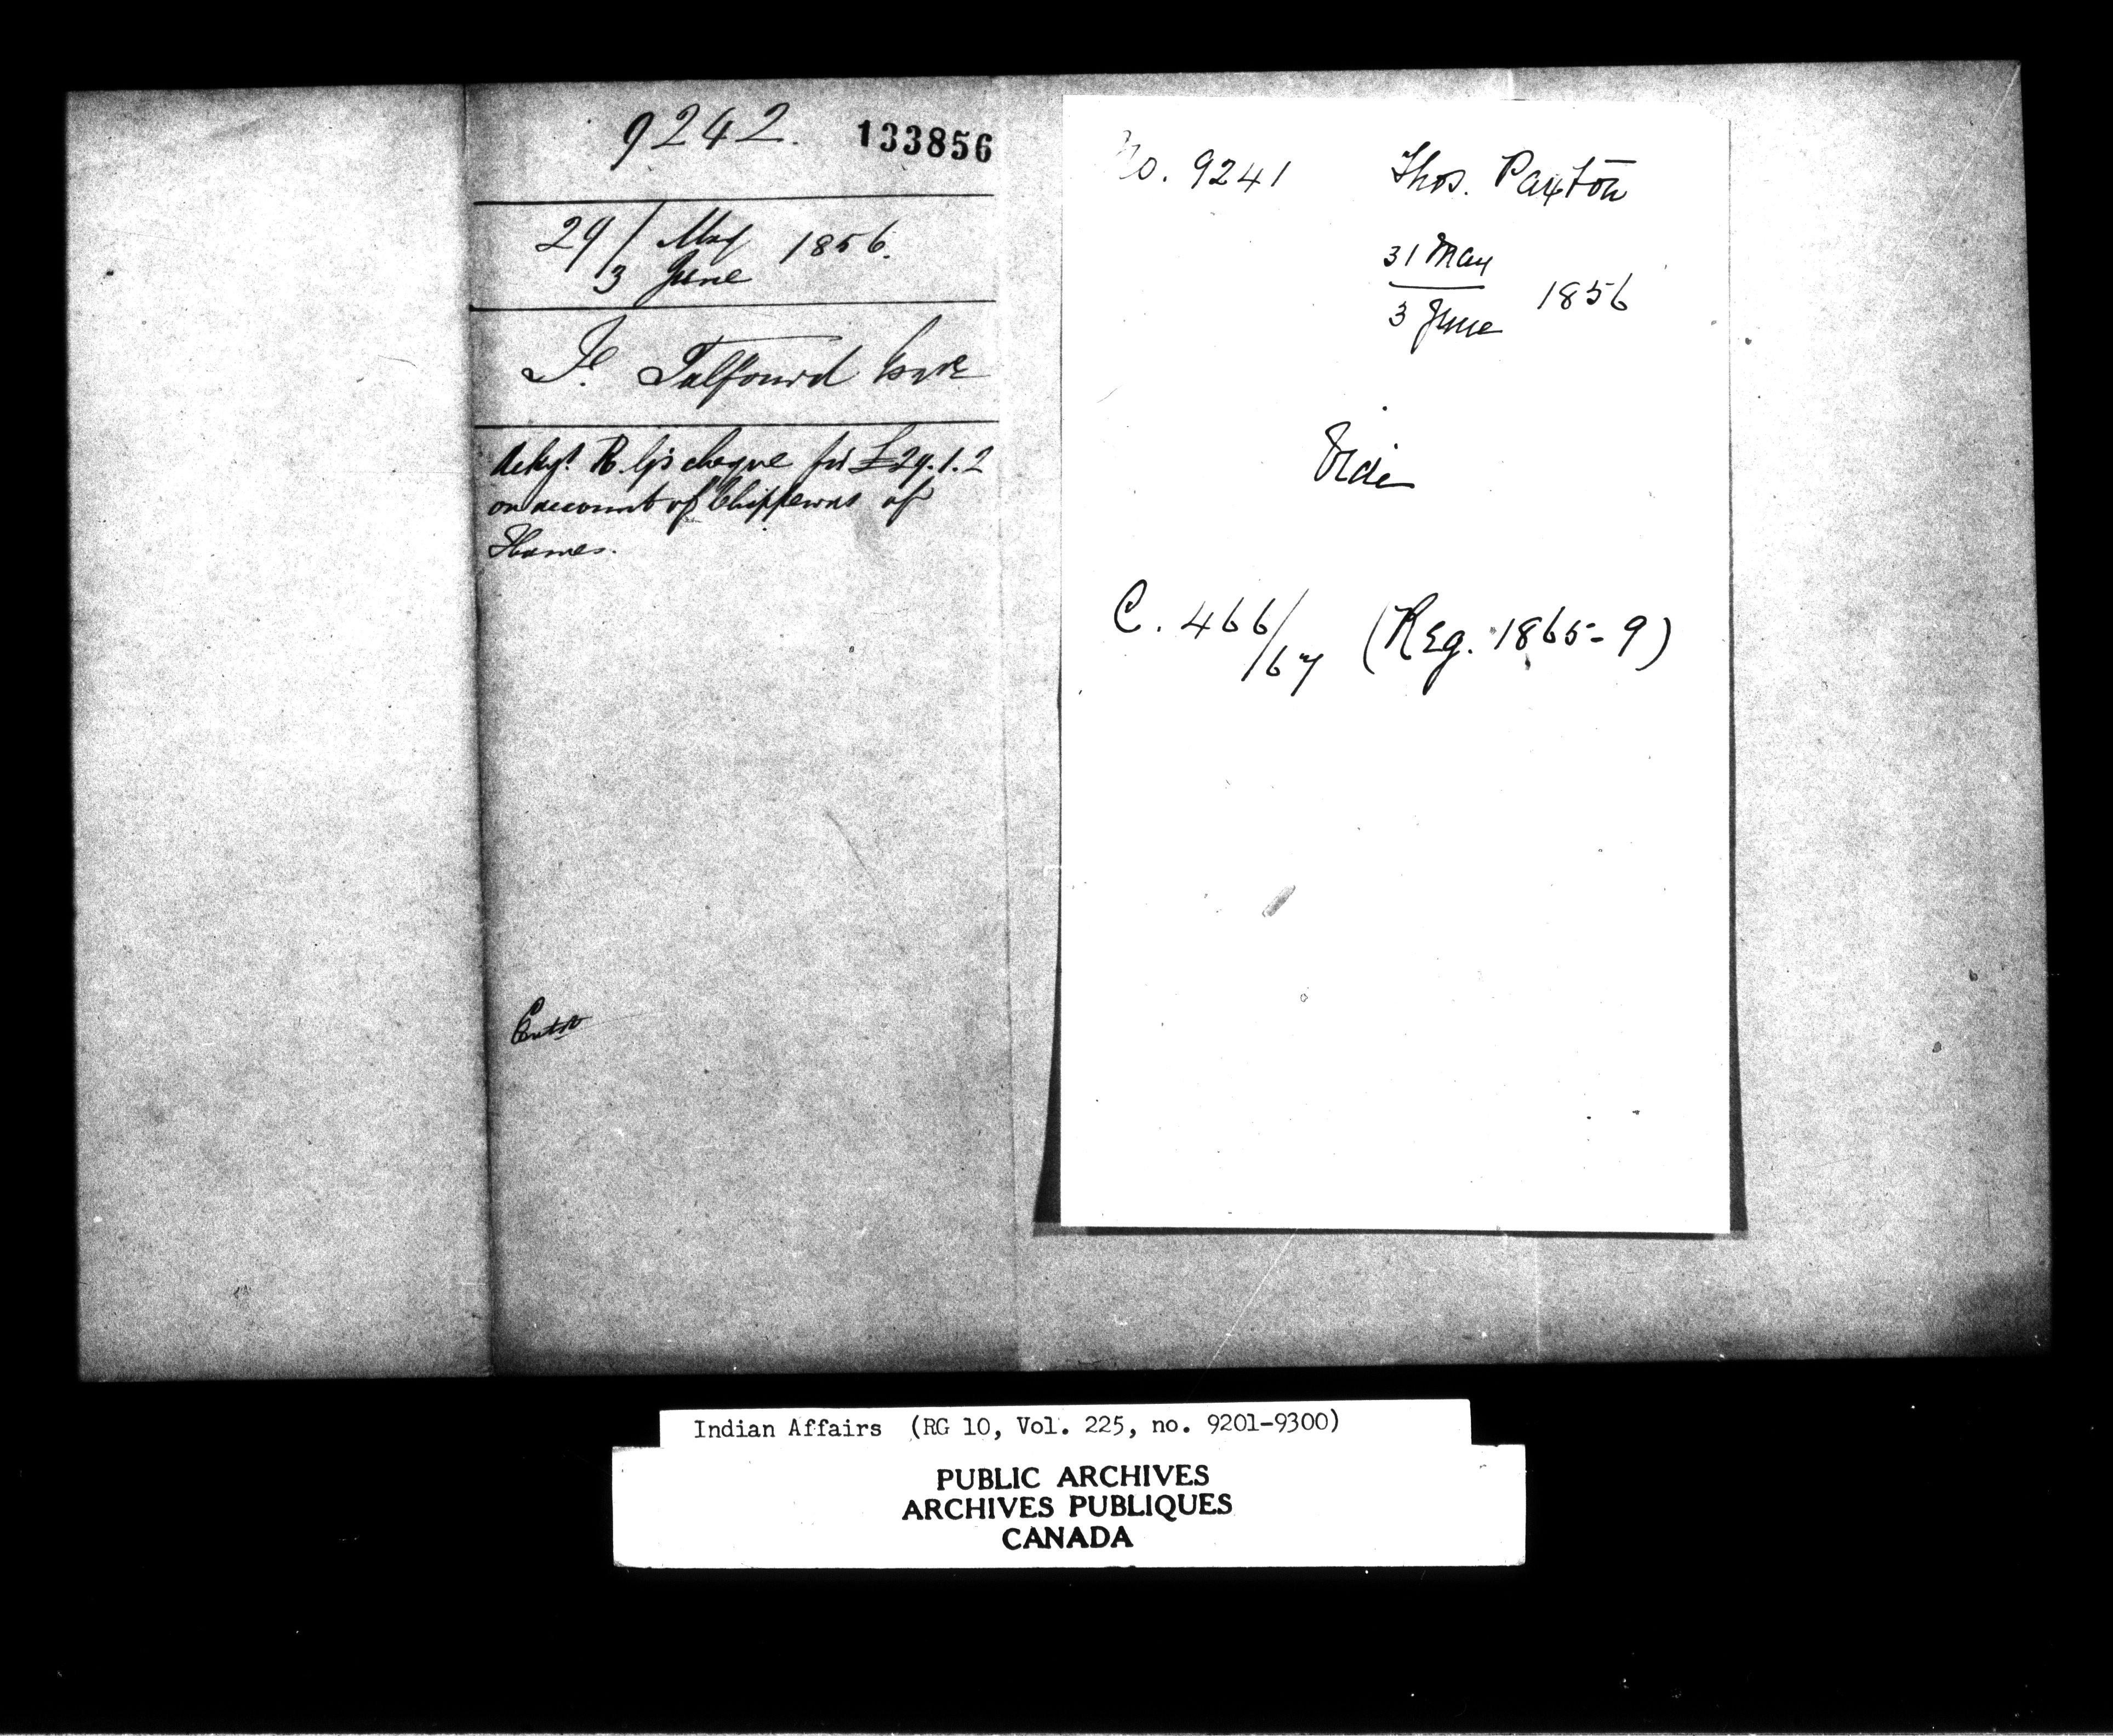 9242. 133856
29/ May 1856.
3 June
Fe Talfourd Esqre
Ackgt. R. G's cheque for £29.1.2
on account of Chippewas of
Thames.
Entd
No. 9241 Thos. Paxton
31 May
3 June 1856
Vide
C. 466/67 (Reg. 1865-9)
Indian Affairs (RG 10, Vol. 225, no. 9201-9300)
PUBLIC ARCHIVES
ARCHIVES PUBLIQUES
CANADA